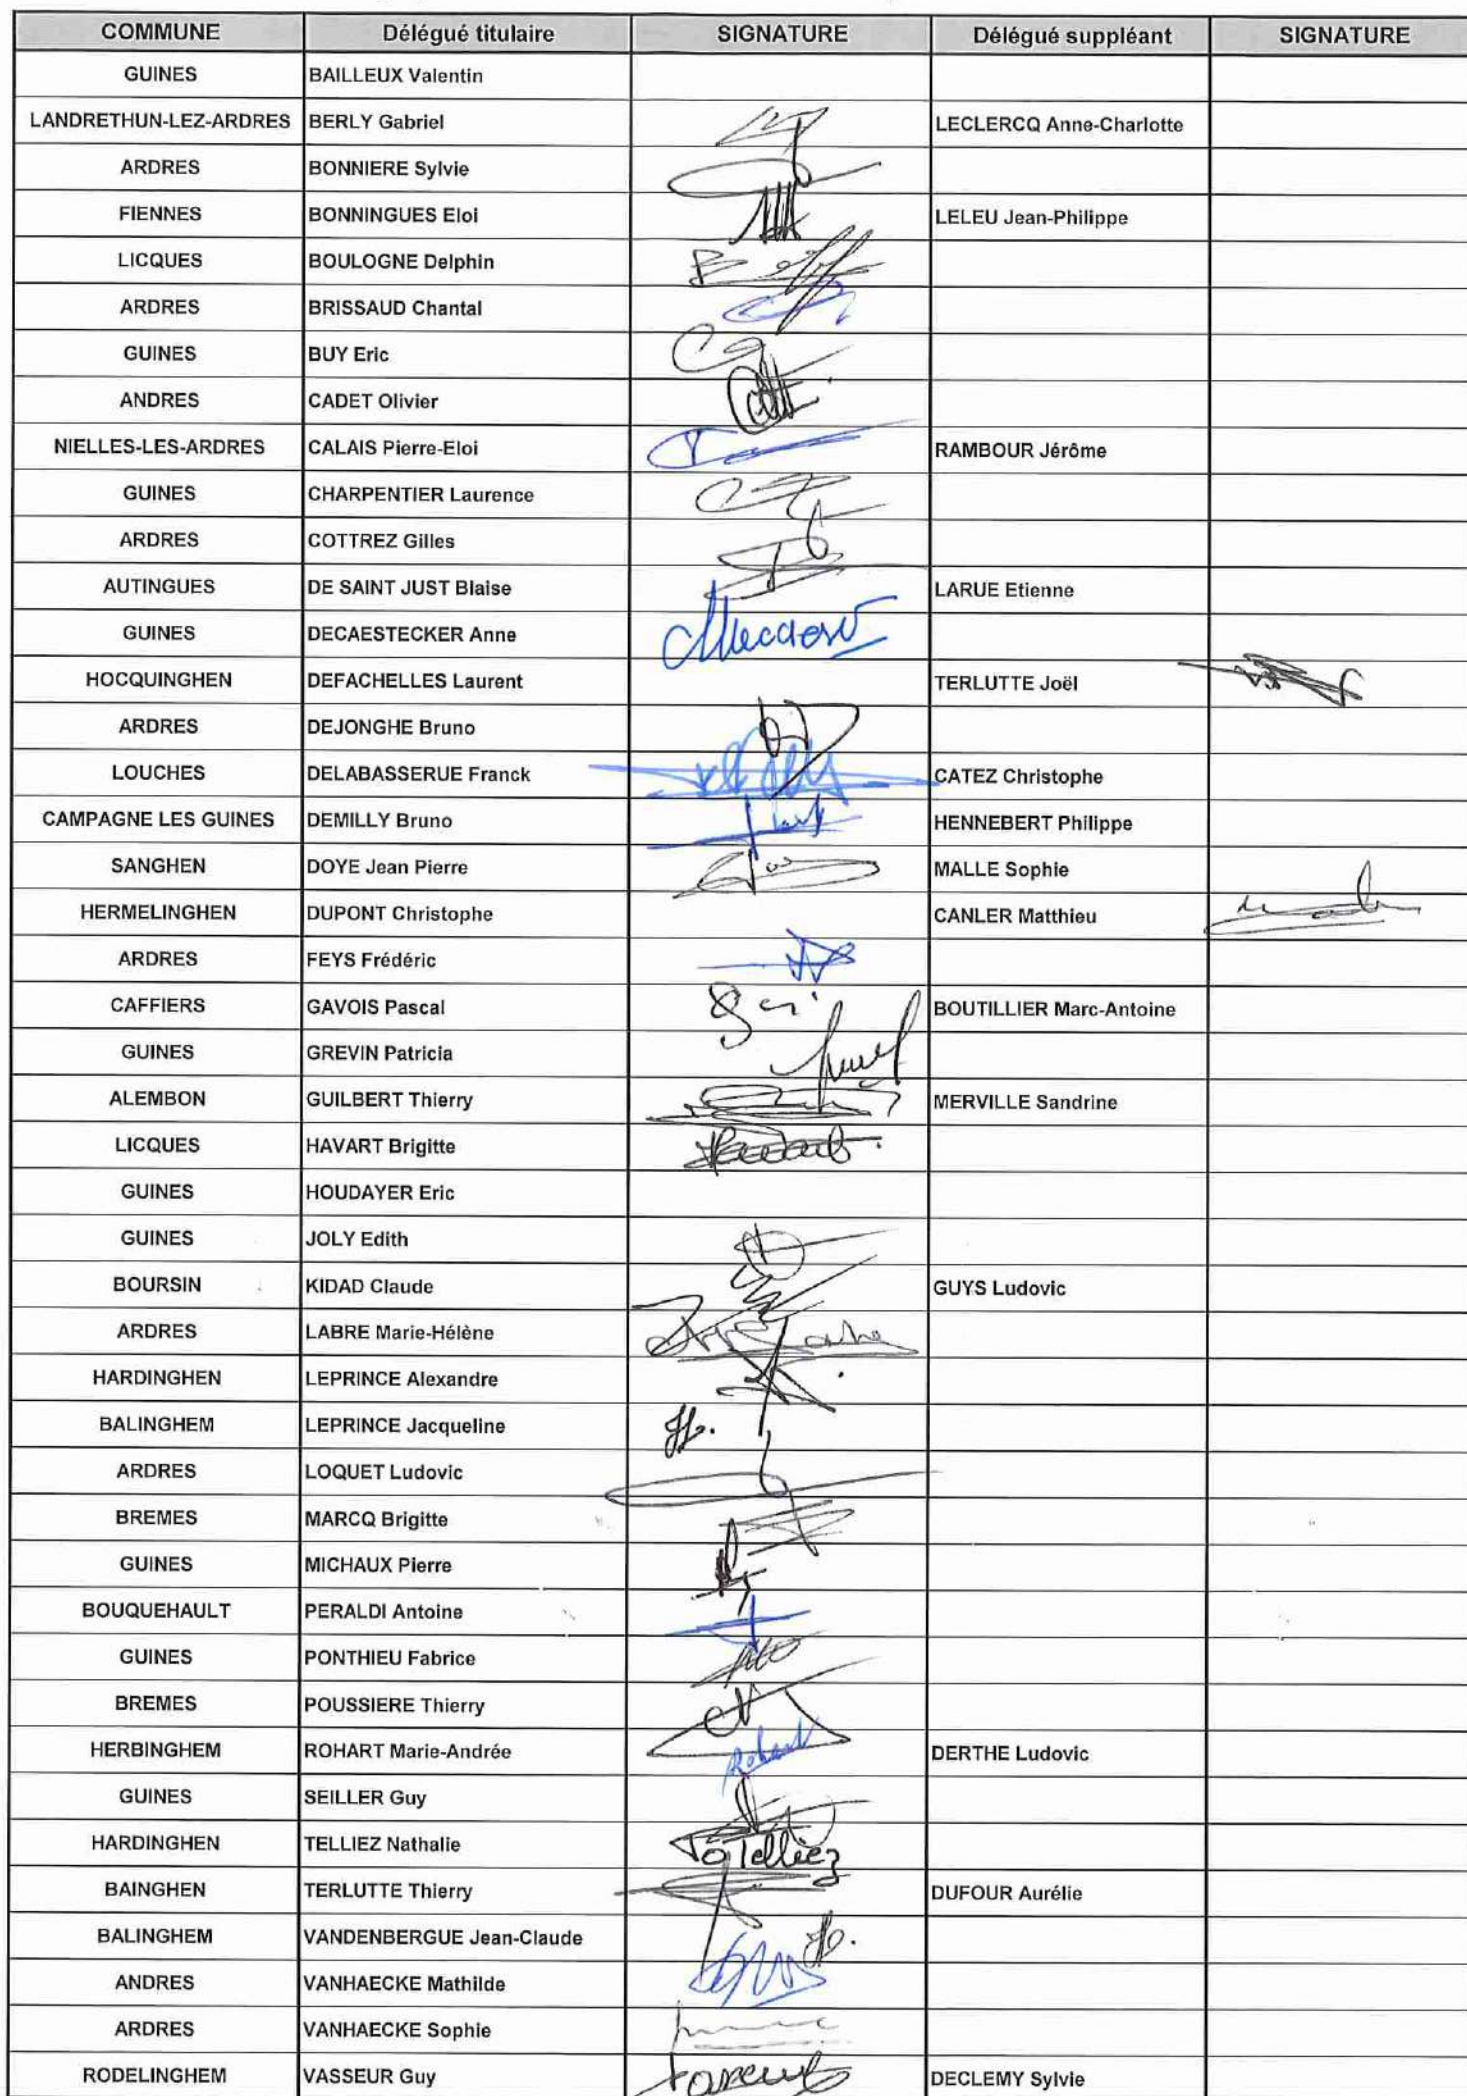 COMMUNE Délégué titulaire SIGNATURE Délégué suppléant SIGNATURE
GUINES BAILLEUX Valentin
LANDRETHUN-LEZ-ARDRES BERLY Gabriel LECLERCQ Anne-Charlotte
ARDRES BONNIERE Sylvie
FIENNES BONNINGUES Eloi LELEU Jean-Philippe
LICQUES BOULOGNE Delphin
ARDRES BRISSAUD Chantal
GUINES BUY Eric
ANDRES CADET Olivier
NIELLES-LES-ARDRES CALAIS Pierre-Eloi RAMBOUR Jérôme
GUINES CHARPENTIER Laurence
ARDRES COTTREZ Gilles
AUTINGUES DE SAINT JUST Blaise LARUE Etienne
GUINES DECAESTECKER Anne
HOCQUINGHEN DEFACHELLES Laurent TERLUTTE Joël
ARDRES DEJONGHE Bruno
LOUCHES DELABASSERUE Franck CATEZ Christophe
CAMPAGNE LES GUINES DEMILLY Bruno HENNEBERT Philippe
SANGHEN DOYE Jean Pierre MALLE Sophie
HERMELINGHEN DUPONT Christophe CANLER Matthieu
ARDRES FEYS Frédéric
CAFFIERS GAVOIS Pascal BOUTILLIER Marc-Antoine
GUINES GREVIN Patricia
ALEMBON GUILBERT Thierry MERVILLE Sandrine
LICQUES HAVART Brigitte
GUINES HOUDAYER Eric
GUINES JOLY Edith
BOURSIN KIDAD Claude GUYS Ludovic
ARDRES LABRE Marie-Hélène
HARDINGHEN LEPRINCE Alexandre
BALINGHEM LEPRINCE Jacqueline
ARDRES LOQUET Ludovic
BREMES MARCQ Brigitte
GUINES MICHAUX Pierre
BOUQUEHAULT PERALDI Antoine
GUINES PONTHIEU Fabrice
BREMES POUSSIERE Thierry
HERBINGHEM ROHART Marie-Andrée Rohart DERTHE Ludovic
GUINES SEILLER Guy
HARDINGHEN TELLIEZ Nathalie Telliez
BAINGHEN TERLUTTE Thierry DUFOUR Aurélie
BALINGHEM VANDENBERGUE Jean-Claude
ANDRES VANHAECKE Mathilde
ARDRES VANHAECKE Sophie
RODELINGHEM VASSEUR Guy DECLEMY Sylvie